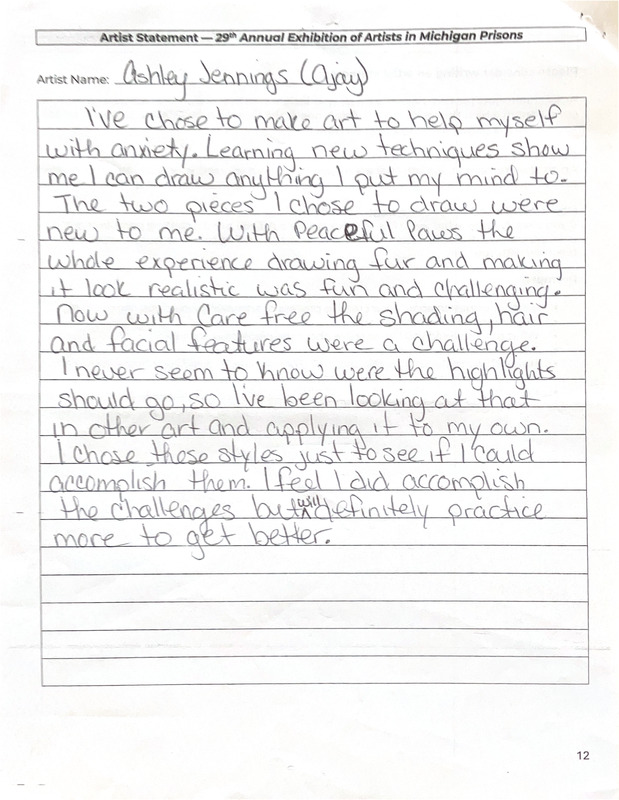 Artist Statement — 29th Annual Exhibition of Artists in Michigan Prisons
Artist Name: Ashley Jennings (Ajay)
I've chose to make art to help myself
with anxiety. Learning new techniques show
me I can draw anything I put my mind to.
The two pieces I chose to draw were
new to me. With Peaceful Paws the
whole experience drawing fur and making
it look realistic was fun and challenging.
Now with Care free the shading, hair
and facial features were a challenge.
I never seem to know were the highlights
should go, so I've been looking at that
in other art and applying it to my own.
I chose these styles just to see if I could
accomplish them. I feel I did accomplish
the challenges but will definitely practice
more to get better.
12